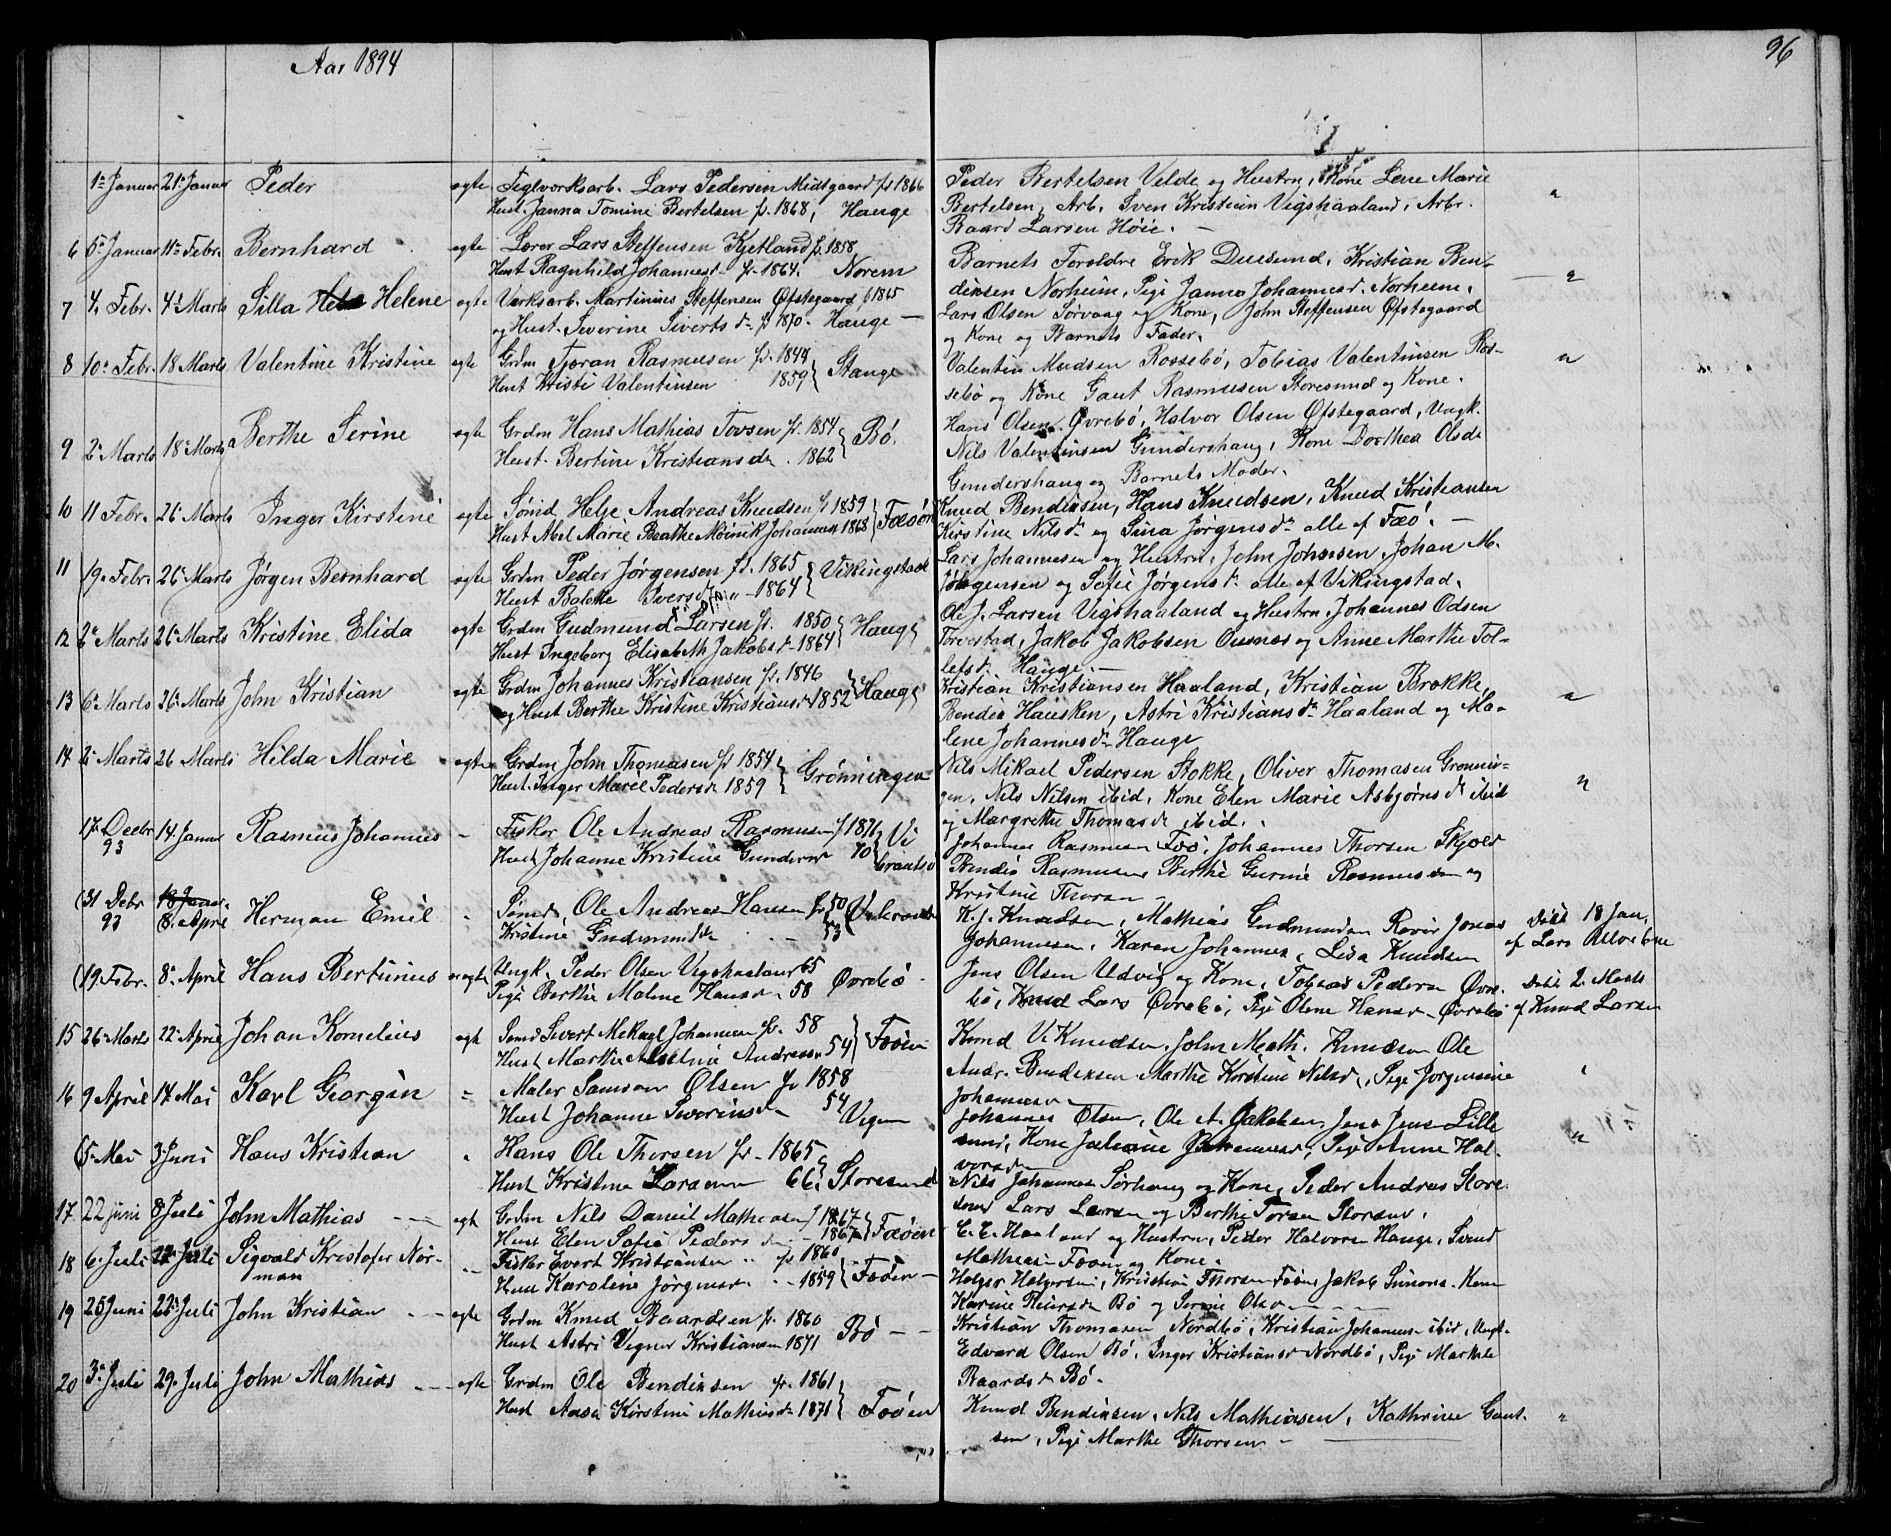 Aar 1894
96
1ª Januar 21ª Januar Peder ægte Teglværksarb. Lars Pedersen Midtgaard f. 1866
Hust. Janna Tomine Bertelsen f. 1868, Hauge
Peder Bertelsen Velde og Hustru, Kone Lene Marie
Bertelsen, Arb. Sven Kristian Vigshaaland, Arbr.
Baard Larsen Høie. —
6 5ª Januar 11ª Febr. Bernhard ægte Lærer Lars Steffensen Kjetland f. 1858
Hust Ragnhild Johannesd. f. 1864. Norem
Barnets Forældre Erik Duesund, Kristian Ben-
diksen Norheim, Pige Janna Johannesd. Norheim,
7 4. Febr. 4ª Marts Silla Helene ægte Værksarb. Martinius Steffensen Øfstegaard f 1865
og Hust. Severine Siverts dr f 1870. Hauge —
Lars Olsen Sørvaag og Kone, John Steffensen Øfstegaard
og Kone og Barnets Fader.
8 10ª Febr. 18 Marts Valentine Kristine ægte Grdm Tjøran Rasmussen f. 1844
Hust Kristi Valentinsen 1859 } Stange
Valentin Rossebø, Tobias Valentinsen Ros-
sebø og Kone Gaut Rasmussen Storesund og Kone.
9 2ª Marts 18ª Marts Berthe Serine ægte Grdm Hans Mathias Tovsen f. 1854
Hust. Bertine Kristiansdr. 1862 } Bø.
Hans Olsen Øvrebø, Halvor Olsen Øfstegaard, Ungk.
Nils Valentinsen Gundershaug, Kone Dorthea Olsdr
Gundershaug og Barnets Moder.
10 11 Febr. 26ª Marts Inger Kirstine ægte Sømd Helge Andreas Knudsen f 1859
Hust Abel Marie Beathe Johannesen 1868 } Fæøen
Knud Bendiksen, Hans Knudsen, Knud Kristiansen
Kirstine Nilsdr og Sina Jørgensdr alle af Fæø. —
11 19ª Febr. 26ª Marts Jørgen Bernhard ægte Grdm Peder Jørgensen f. 1865
Hust Iversd 1864 } Vikingstad
Lars Johannesen og Hustru, John Johnsen, Johan M.
Jørgensen og Sofie Jørgensdr alle af Vikingstad.
12 2ª Marts 26ª Marts Kristine Elida ægte Grdm Gudmund Larsen f. 1850
Hust Ingeborg Elisabeth Jakobsd 1864 } Hauge
Ole J. Larsen Vigshaaland og Hustru, Johannes Odsen
Torvestad, Jakob Jakobsen Osnes og Anne Marthe Tol-
lefsdr Hauge. —
13 6ª Marts 26ª Marts John Kristian ægte Grdm Johannes Kristiansen f. 1846
og Hust Berthe Kristine Kristiansdr 1852 } Hauge
Kristian Kristiansen Haaland, Kristian Brekke,
Bendix Hausken, Astri Kristiansdr Haaland og Ma-
lene Johannesdr Hauge
14 2ª Marts 26 Marts Hilda Marie ægte Grdm John Thomassen f 1854
Hust. Inger Marie Pedersdr 1859 } Grønningen
Nils Mikael Pedersen Stokke, Oliver Thomasen Grønnin-
gen, Nils Nilsen ibid, Kone Elen Marie Asbjørnsdr ibid
og Margrethe Thomasdr ibid.
17ª Decbr 93 14. Januar Rasmus Johannes - Fisker Ole Andreas Rasmussen f 1871
Hust Johanne Kristine Gundersd 70
Johannes Rasmussen Fæø, Johannes Thorsen Skjold
Bendix Rasmussen Berthe Gurine Rasmusdr og
Kristine Thorsen
(31 Debr 93 8. April Herman Emil " Sømd. Ole Andreas Hansen f. 50
Kristine Gudmundsdr 53
K. J. Knudsen, Mathias Gudmundsen Røvær Jonas
Johannesen, Karen Johannes, Lisa Knudsen
Døbt 18 Jan.
af Lars
(19. Febr. 8ª April Hans Bertinius uægte Ungk. Peder Olsen Vigshaaland 65
Pige Berthe Malene Hansd. 58 Øvrebø
Jens Olsen Udvig og Kone, Tobias Pedersen Øvre-
bø, Knud Lars Øvrebø, Pige Olene Hansd. Øvrebø
Døbt 2. Marts
af Knud Larsen
15 26ª Marts 22ª April Johan Kornelius ægt Sømd Sivert Mikael Johannesen f. 58
Hust Marthe Andreasdr 54 } Fæøen
Knud V. Knudsen, John Math. Knudsen Ole
Andr. Bendiksen Marthe Kirstine Nilsd., Pige Jørgensine
Johannesdr
16 9 April 14 Mai Karl Georgin " Maler Samson Olsen f. 1858
Hust Johanne Severinsdr 54
Johannes Olsen, Ole A. Jakobsen, Jens Jens Lille
sund, Kone Johannesd, Pige Anne Hal-
vorsdr
(5ª Mai 3. Juni Hans Kristian " Hans Ole Thorsen f. 1865
Hust Kristine Larsen 66 } Storesund
Nils Johannesen Sørhaug og Kone, Peder Andreas Store-
sund Lars Larsen og Berthe Storsun.
17. 22 juni 8 Juli John Mathias — ægt Grdm Nils Daniel Mathiasen f 1867
Hust Elen Sofie Pedersdr 1867 } Fæøen
E. E. Haaland og Hustru, Peder Halvorsen Hauge, Svend
Mathiasen Fæøen og Kone.
18 6. Juli 22. Juli Sigvald Kristofer Nor-
man " Fisker Evert Kristiansen f 1860
Hust Karoline Jørgensd 1859 } Fæøen —
Holger Holgersen, Kristian Thorsen Fæøen, Jakob Simons. Kone
Karine Reiersdr Bø og Serine Olsd
19 25 Juni 22. Juli John Kristian — ægte Grdm Knud Baardsen f. 1860
Hust Astri Kristiansen 1871 Bø —
Kristian Thomasen Nordbø, Kristian Johannes. ibid, Ungk.
Edvard Olsen Bø, Inger Kristiansd Nordbø, Pige Marthe
Baardsdr Bø.
20 3ª Juli 29. Juli John Mathias — ægte Grdm Ole Bendiksen f. 1861
Hust Aasa Kirstine Mathiasdr 1871 } Fæøen
Knud Bendiksen, Nils Mathiasen, Kathrine Gaut-
sen, Pige Marthe Thorsen —